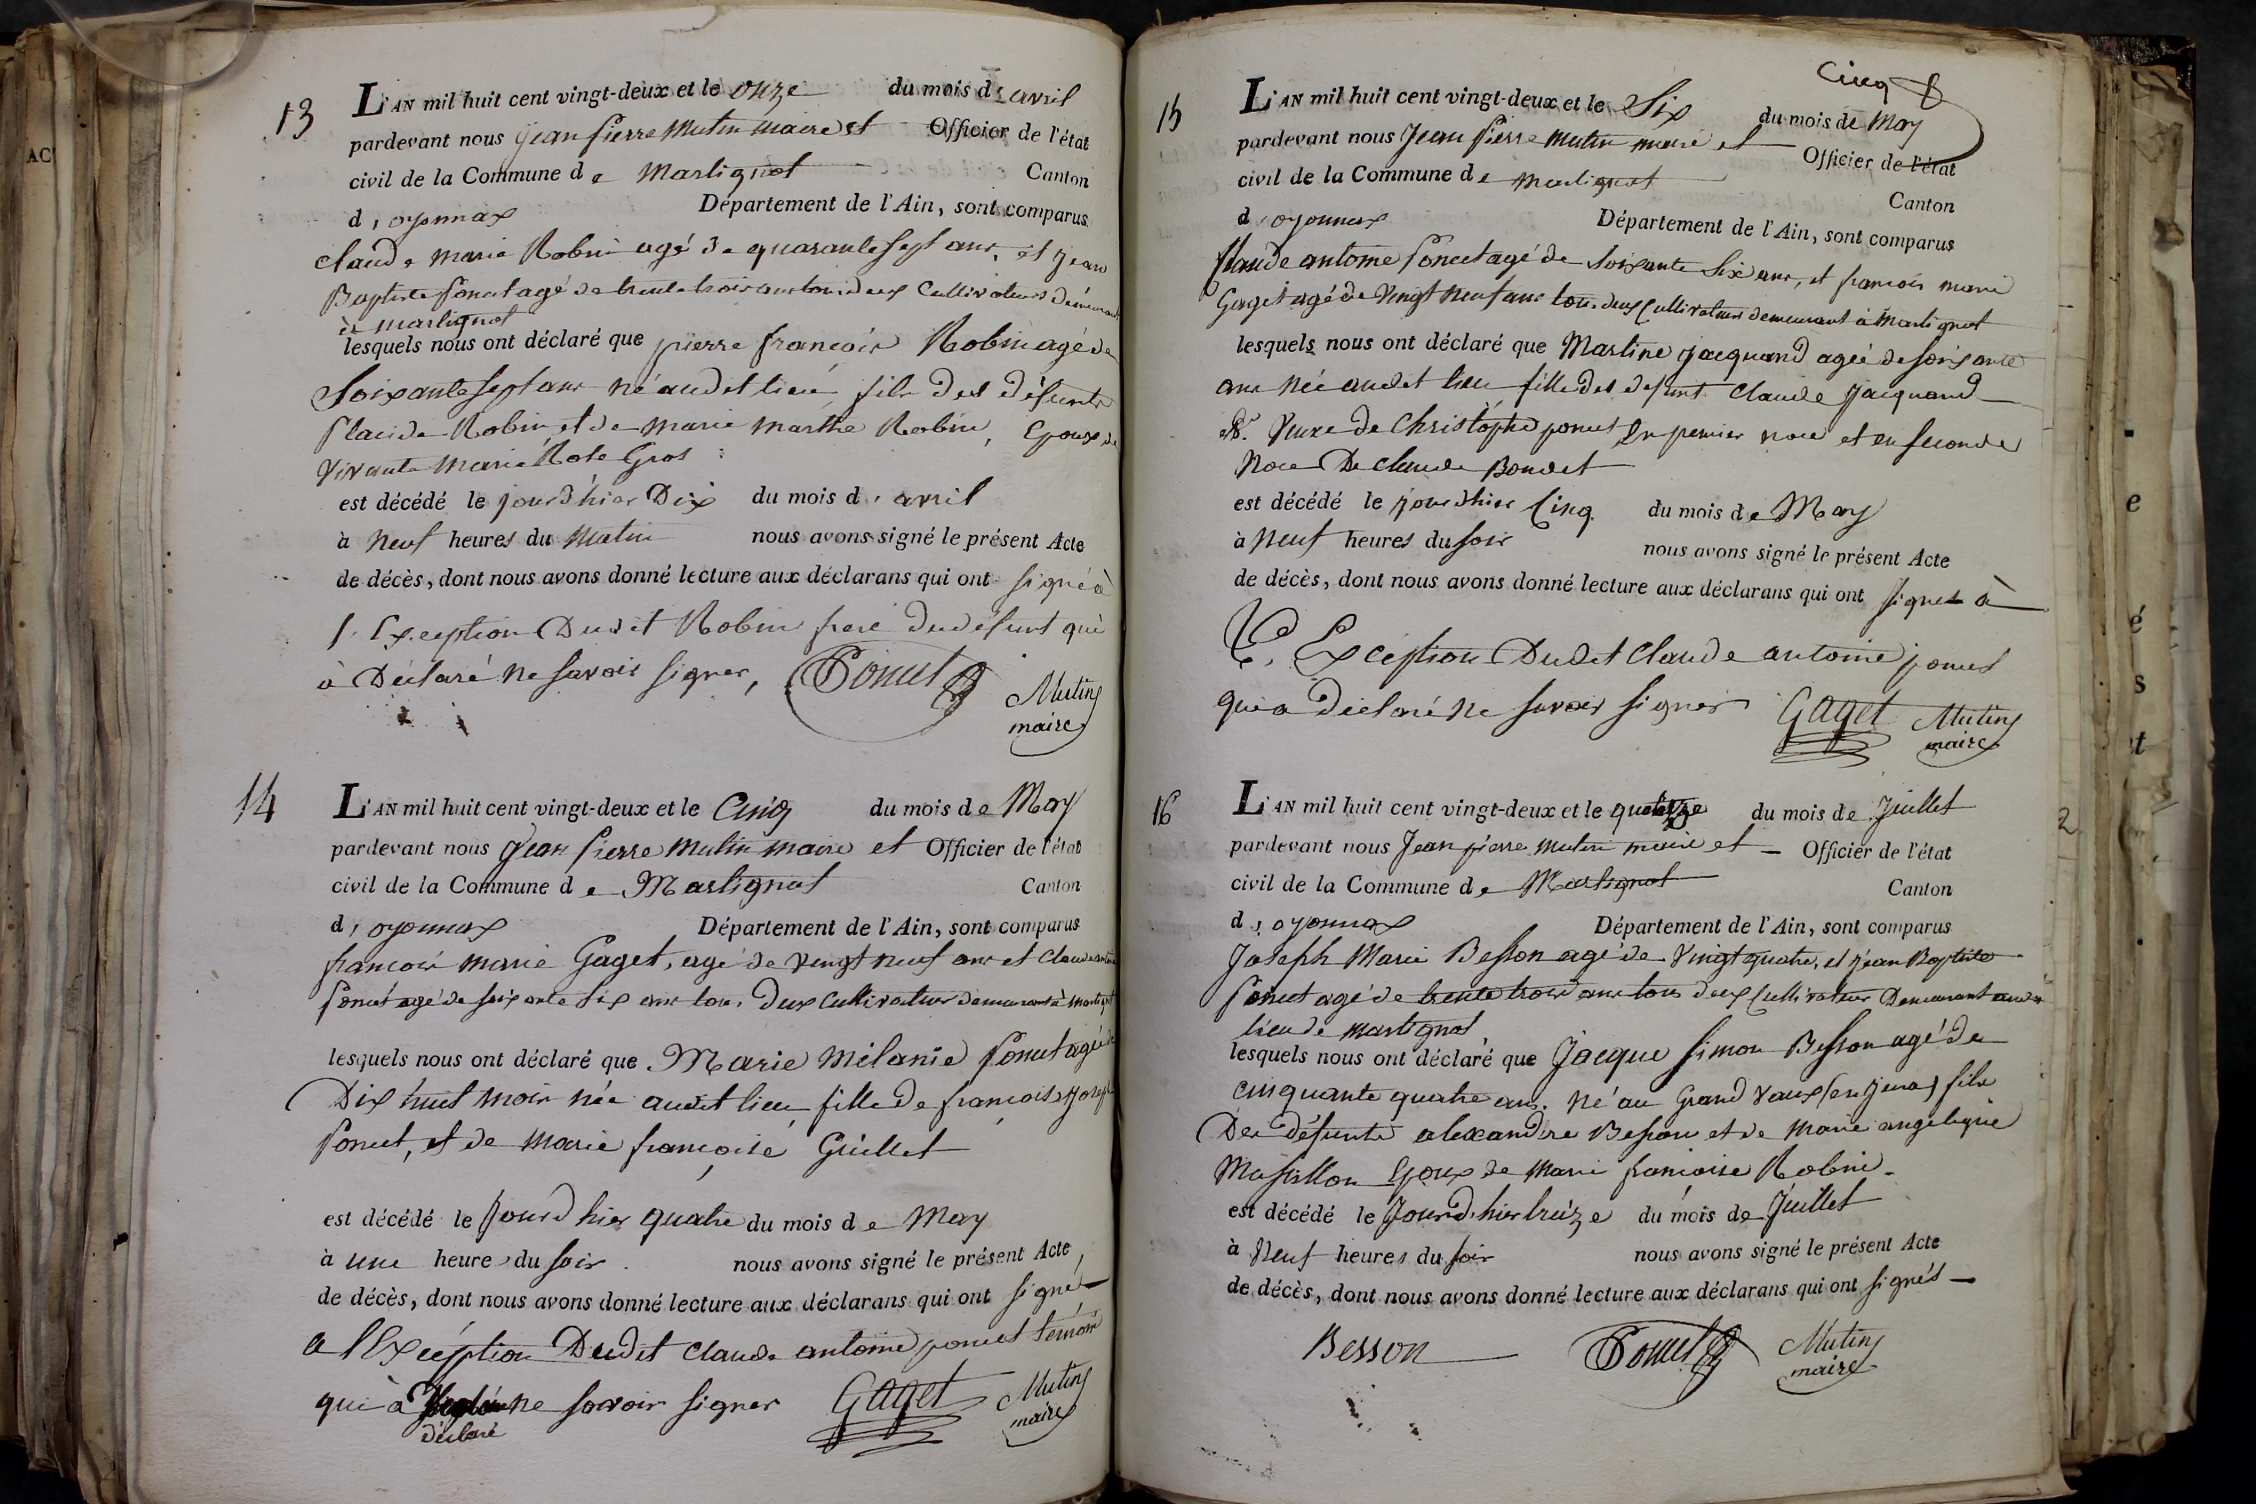 13
L'AN mil huit cent vingt-deux et le onze du mois d'avril
pardevant nous Jean pierre Mutin maire et Officier de l'état
civil de la Commune de Martignat Canton
d'oyonnax Département de l'Ain, sont comparus
Claude marie Robin agé de quarante sept ans, et jean
Baptiste Poncet agé de trente trois ans tous deux Cultivateurs demeurant
à martignat
lesquels nous ont déclaré que pierre françois Robin agé de
Soixante sept ans né audit lieu, fils des défunts
Placide Robin et de marie marthe Robin, Epoux de
vivante marie Gros
est décédé le jourd'hier Dix du mois d'avril
à neuf heures du matin nous avons signé le présent Acte
de décès, dont nous avons donné lecture aux déclarans qui ont signé à
l'Exception Dudit Robin frere du défunt qui
à Déclaré ne savoir signer, Poncet Mutin
maire
14
L'AN mil huit cent vingt-deux et le Cinq du mois de May
pardevant nous Jean Pierre Mutin maire et Officier de l'état
civil de la Commune de Martignat Canton
d'oyonnax Département de l'Ain, sont comparus
françois marie Gaget, agé de vingt neuf ans et Claude antoine
Poncet agé de soixante six ans tous deux Cultivateurs demeurant à martignat
lesquels nous ont déclaré que Marie Mélanie Poncet agée de
Dix huit mois née audit lieu fille de françois Joseph
Poncet, et de marie françoise Guillet
est décédé le Jourd'hier quatre du mois de May
à une heure du soir nous avons signé le présent Acte
de décès, dont nous avons donné lecture aux déclarans qui ont signé
a l'Exception Dudit Claude antoine poncet témoin
qui à ne savoir signer Gaget Mutin
déclaré maire
15
Cinq
L'AN mil huit cent vingt-deux et le Six du mois de May
pardevant nous Jean Pierre Mutin maire et Officier de l'état
civil de la Commune de Martignat Canton
d'oyonnax Département de l'Ain, sont comparus
Claude antoine Poncet agé de soixante Six ans, et françois marie
Gaget agé de Vingt neuf ans tous deux Cultivateurs demeurant à Martignat
lesquels nous ont déclaré que Martine jacquand agée de soixante
ans née audit lieu fille des defunt Claude Jacquand
et Veuve de Christophe poncet En premier noce et en seconde
Noce De claude Bondet
est décédé le jourd'hier Cinq du mois de May
à Neuf heures du soir nous avons signé le présent Acte
de décès, dont nous avons donné lecture aux déclarans qui ont signés à
L'Exception Dudit Claude antoine poncet
qui a Déclaré ne savoir signer Gaget Mutin
maire
16
L'AN mil huit cent vingt-deux et le quatorze du mois de Juillet
pardevant nous Jean pierre Mutin maire et Officier de l'état
civil de la Commune de Martignat Canton
d'oyonnax Département de l'Ain, sont comparus
Joseph Marie Besson agé de Vingt quatre, et jean Baptiste
Poncet agé de trente trois ans tous deux Cultivateurs Demeurant audit
lieu de martignat
lesquels nous ont déclaré que Jacque Simon Besson agé de
cinquante quatre ans. né au Grand vaux (en jura) fils
Des défunts alexandre Besson et de Marie angelique
Masillon Epoux de Marie françoise Robin
est décédé le Jourd'hier treize du mois de Juillet
à Neuf heures du soir nous avons signé le présent Acte
de décès, dont nous avons donné lecture aux déclarans qui ont signés
Besson Poncet Mutin
maire